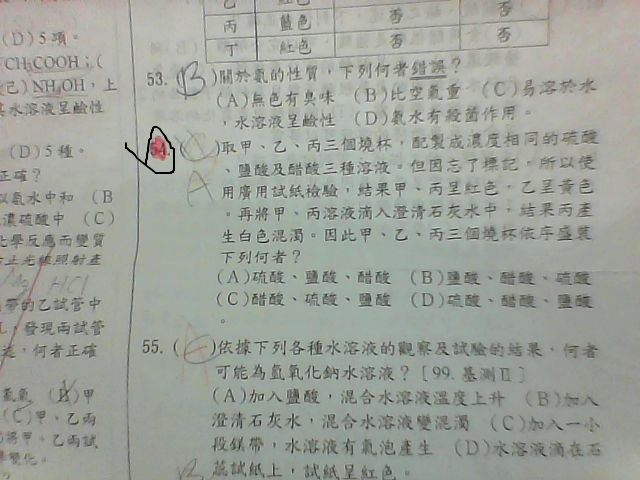 乙 紅色
丙 藍色 否 否
丁 紅色 否 否
(D)5 項。
CH₃COOH；(
己)NH₄OH，上
水溶液呈鹼性
(D)5 種。
正確？
以氨水中和 (B
濃硫酸中 (C)
化學反應而變質
止光線照射產
HCl
帶的乙試管中
發現兩試管
何者正確
氫氣 (B)甲
(C)甲、乙兩
將甲、乙兩試
變化。
53. (B)關於氨的性質，下列何者錯誤？
(A)無色有臭味 (B)比空氣重 (C)易溶於水
，水溶液呈鹼性 (D)氨水有殺菌作用。
54. ( )取甲、乙、丙三個燒杯，配製成濃度相同的硫酸
、鹽酸及醋酸三種溶液。但因忘了標記，所以使
A 用廣用試紙檢驗，結果甲、丙呈紅色，乙呈黃色
。再將甲、丙溶液滴入澄清石灰水中，結果丙產
生白色混濁。因此甲、乙、丙三個燒杯依序盛裝
下列何者？
(A)硫酸、鹽酸、醋酸 (B)鹽酸、醋酸、硫酸
(C)醋酸、硫酸、鹽酸 (D)硫酸、醋酸、鹽酸
。
55. ( )依據下列各種水溶液的觀察及試驗的結果，何者
可能為氫氧化鈉水溶液？[99.基測Ⅱ]
(A)加入鹽酸，混合水溶液溫度上升 (B)加入
澄清石灰水，混合水溶液變混濁 (C)加入一小
段鎂帶，水溶液有氣泡產生 (D)水溶液滴在石
蕊試紙上，試紙呈紅色。
B